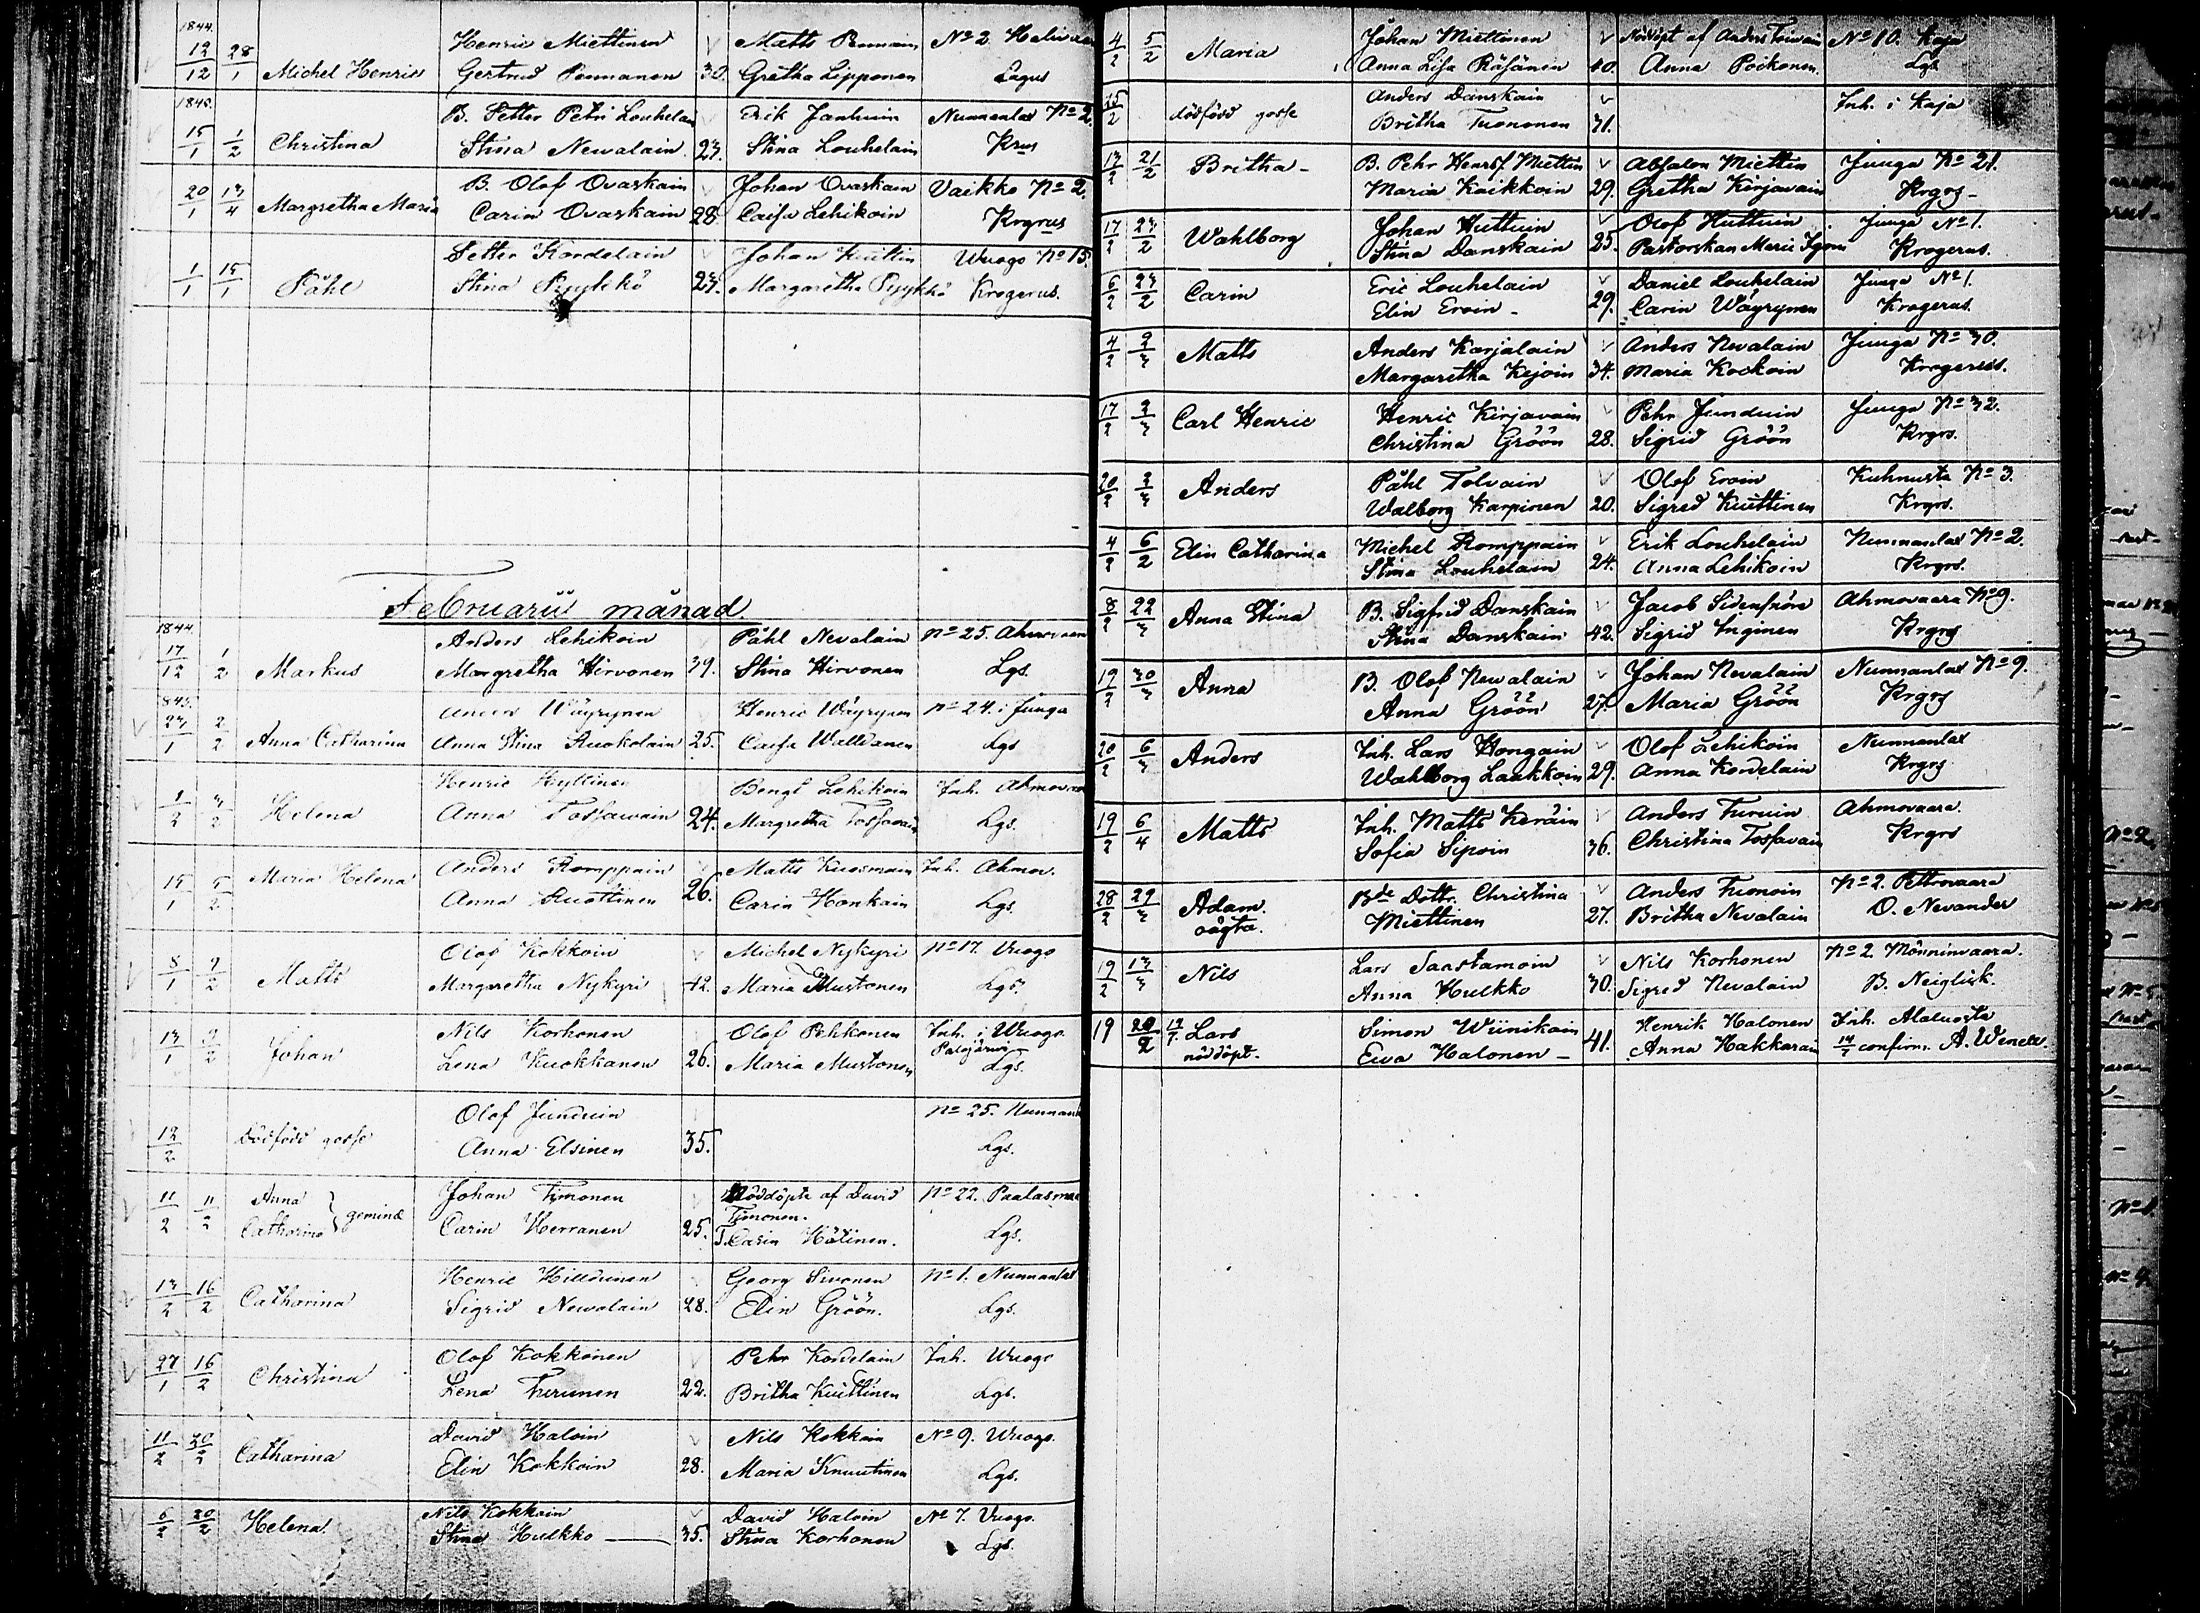 1844.
12/12 28/1 Michel Henric Henric Miettinen Matts
Gertrud 30. Gretha Lipponen Lagus
No 2
1845.
15/1 1/2 Christina B. Petter Petri Louhelain Erik Nunnanlax No 2.
Stina Nevalain 23. Stina Louhelain Krus
20/1 13/4 Margretha Maria B. Olof Ovaskain Johan Ovaskain Vaikko No 2.
Carin Ovaskain 28. Caisa Lehikoin Krgrus
1/1 15/1 Påhl Petter Kordelain Johan Kuittin Wuogo No 15.
Stina Pyykkö 23. Margaretha Pyykkö Krogerus.
Februarii månad
1844.
17/12 1/2 Markus Anders Lehikoin Påhl Nevalain No 25. Ahmovaara
Margretha Hirvonen 39. Stina Hirvonen Lgs.
1845.
23/1 2/2 Anna Catharina Anders Wäyrynen Henric Wäyrynen No 24. i Juuga
Anna Stina Ruokolain 25. Caisa Lgs
1/2 3/2 Helena Henric Hyttinen Bengt Lehikoin Inh.
Anna Tossavain 24. Margretha Tossavain Lgs.
15/1 5/2 Maria Helena Anders Romppain Matts Kuosmain Inh. Ahmov.
Anna Ruottinen 26. Carin Honkain Lgs.
8/1 9/2 Matts Olof Kokkoin Michel Nykyri No 17. Wuogo
Margaretha Nykyri 42. Maria Mustonen Lgs.
13/1 9/2 Johan Nils Korhonen Olof Pehkonen Inh. i Wuogo.
Lena Kuokkanen 26. Maria Mustonen Lgs.
12/2 dödfödd gosse Olof Junduin No 25.
Anna Elsinen 35. Lgs.
11/2 11/2 Anna Catharina } geminæ Johan Timonen Nöddöpte af David Timonen. No 22. Paalasmaa
Carin Herranen 25. T. Carin Hätinen. Lgs.
13/2 16/2 Catharina Henric Hilldunen Georg Sivonen No 1. Nunnanlax
Sigrid Nevalain 28. Elin Gröön. Lgs.
27/1 16/2 Christina Olof Kokkonen Pehr Kordelain Inh. Wuogo
Lena Turunen 22. Britha Kuittinen Lgs.
11/2 20/2 Catharina David Haloin Nils Kokkoin No 9. Wuogo.
Elin Kokkoin 28. Maria Knuutinen Lgs.
6/2 20/2 Helena. Nils Kokkoin David Haloin No 7. Vuogo.
Stina Hulkko 35. Stina Korhonen Lgs.
4/2 5/2 Maria Johan Miettinen Nöddöpt af Anders Toivain No 10. Kaja
Anna Lisa Räsänen 40. Anna Poikonen. Lgs
15/2 dödfödd gosse Anders Danskain Inh. i Kaja
Britha Tuononen 31.
13/2 21/2 Britha- B. Pehr Henrsf. Miettin Absalon Miettin Juuga No 21.
Maria Kaikkoin 29. Gretha Kirjavain Krgrs-
17/2 23/2 Wahlborg Johan Huttuin Olof Huttuin Juuga No 1.
Stina Danskain 25. Pastorskan Krogerus.
6/2 23/2 Carin Eric Louhelain Daniel Louhelain Juuga No 1.
Elin Eroin- 29. Carin Wäyrynen Krogerus.
4/2 2/3 Matts Anders Karjalain Anders Nevalain Juuga No 30.
Margaretha Kejoin 34. Maria Kockoin Krogerus.
17/2 2/3 Carl Henric Henric Kirjavain Pehr Junduin Juuga No 32.
Christina Gröön 28. Sigrid Gröön Krgrs.
20/2 2/3 Anders Påhl Tolvain Olof Eroin Kuhnusta No 3.
Walborg Karpinen 20. Sigred Kuittinen Krgrs.
4/2 6/2 Elin Catharina Michel Romppain Erik Louhelain Nunnanlax No 2.
Stina Louhelain 24. Anna Lehikoin Krgrs.
8/2 22/3 Anna Stina B. Sigfrid Danskain Jacob Sidensnöre Ahmovaara No 9.
Stina Danskain 42. Sigrid Inginen Krgrs
19/2 30/3 Anna B. Olof Nevalain Johan Nevalain Nunnanlax No 9.
Anna Gröön 27. Maria Gröön Krgrs
20/2 6/3 Anders Inh. Lars Hongain Olof Lehikoin Nunnanlax
Wahlborg Laukkoin 29. Anna Kordelain Krgrs
19/2 6/4 Matts Inh. Matts Keräin Anders Turuin Ahmovaara.
Sofia Sipoin 36. Christina Tossavain Krgrs
28/2 29/3 Adam. oägta. Bde Dottr. Christina Anders Tuonoin No 2. Petrovaara
Miettinen 27. Britha Nevalain O. Nevander
19/2 13/3 Nils Lars Saastamoin Nils Korhonen No 2. Mönninvaara.
Anna Hulkko 30. Sigred Nevalain B. Neiglick.
19 20/2 Lars Simon Wiinikain Henrik Halonen Inh. Alaluosta
nöddöpt. Eva Halonen- 41. Anna Hakkarain confirm. A. Wenell.